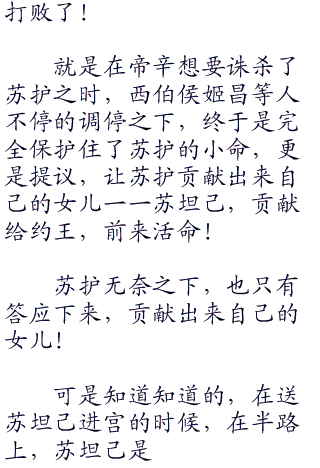 打败了！
就是在帝辛想要诛杀了
苏护之时，西伯侯姬昌等人
不停的调停之下，终于是完
全保护住了苏护的小命，更
是提议，让苏护贡献出来自
己的女儿一一苏坦己，贡献
给约王，前来活命！
苏护无奈之下，也只有
答应下来，贡献出来自己的
女儿！
可是知道知道的，在送
苏坦己进宫的时候，在半路
上，苏坦己是